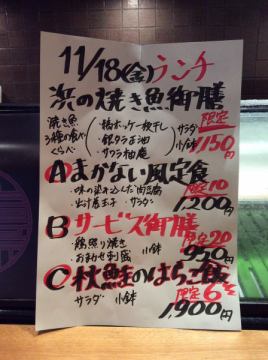 11/18(金)ランチ
浜の焼き魚御膳
焼き魚
3種の食べ
くらべ
・縞ホッケ一枚干し
・銀ダラ正油
・サワラ柚庵
サラダ
小鉢
限定
1150円
Aまかない風定食
・味の染み込んだ肉豆腐
・出汁巻玉子 ・サラダ
限定10
1200円
Bサービス御膳
・鶏照り焼き
・おまかせ刺盛
小鉢
限定20
950円
C秋鮭のはらこ飯
サラダ 小鉢
限定6
1,900円